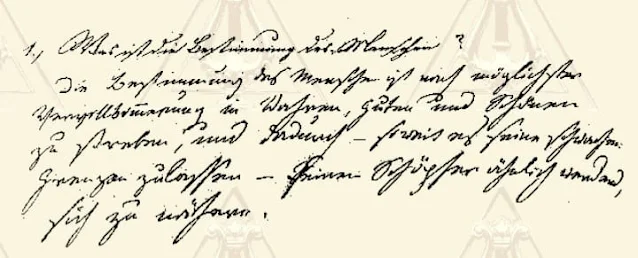 1., Was ist die Bestimmung des Menschen?
Die Bestimmung des Menschen ist nach möglichster
Vervollkommnung im Wahren, Guten und Schönen
zu streben, und dadurch – soweit es seine schwachen
Grenzen zulassen – seinem Schöpfer ähnlich werdend,
sich zu nähern.